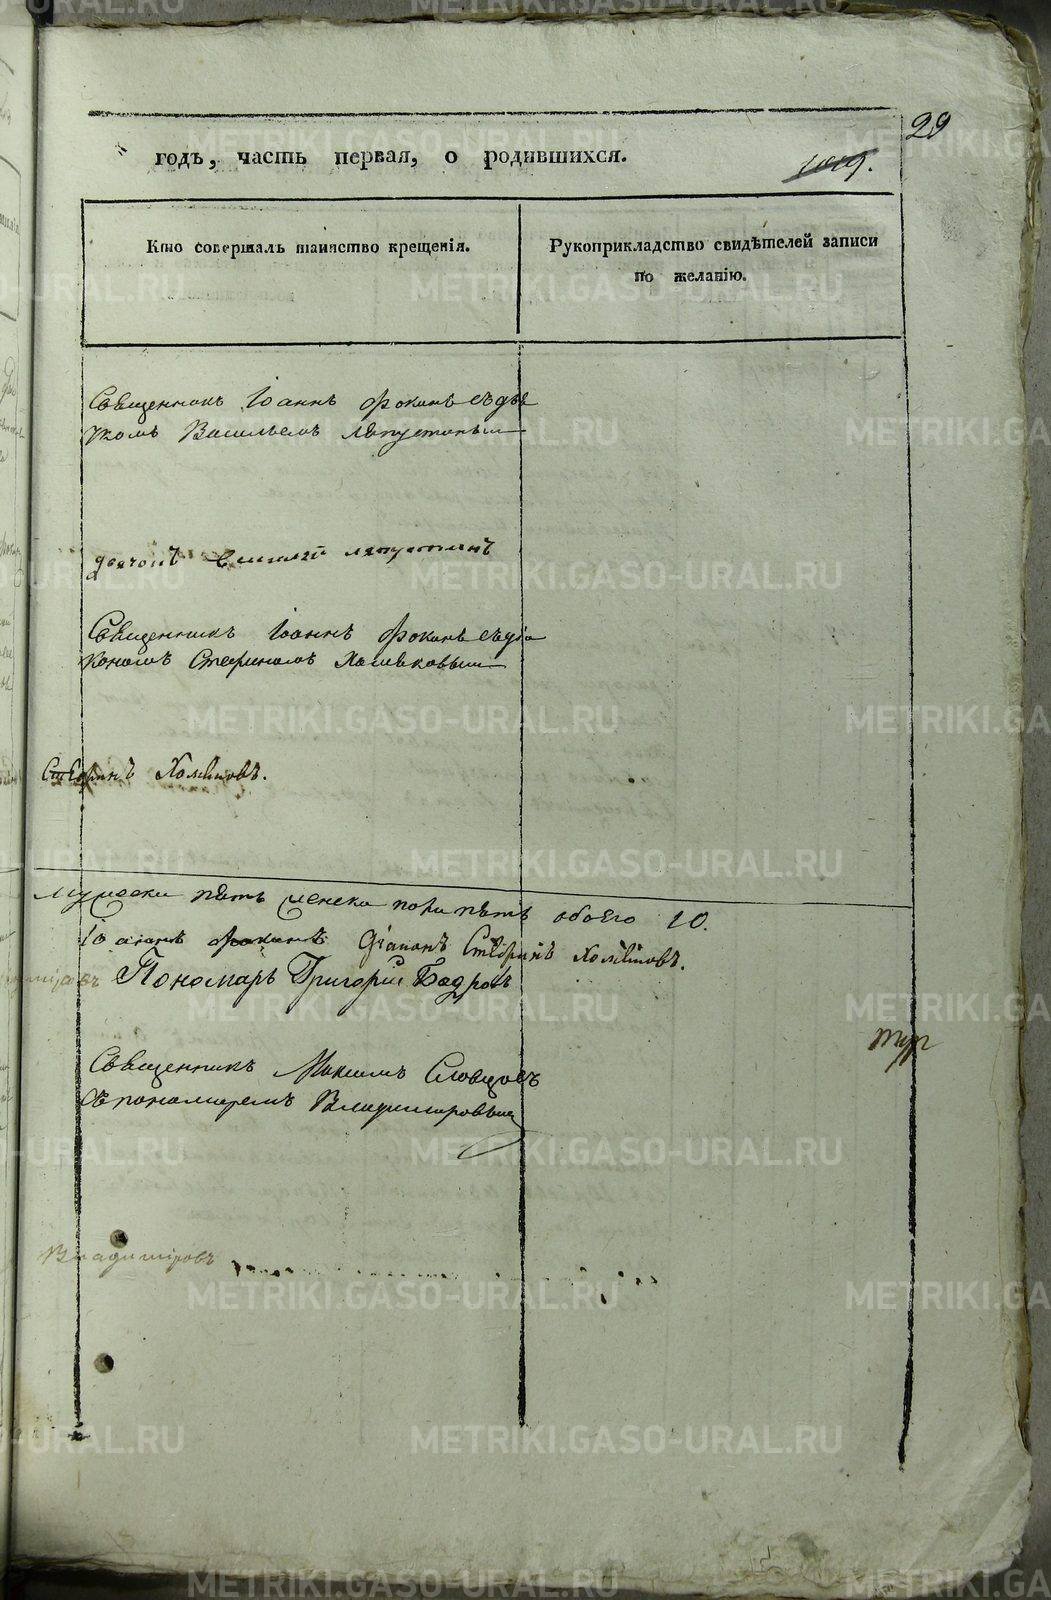 29
годъ, часть первая, о родившихся.
Кто совершалъ таинство крещенія.
Рукоприкладство свидѣтелей записи
по желанію.
Священникъ Іоаннъ Фокинъ съ дья
комъ Васильемъ Лапустинымъ
дьячокъ Василій Лапустинъ
Священникъ Іоаннъ Фокинъ съ діа
кономъ Стефаномъ Холмковымъ
Стефанъ
Мужеска пятъ женска пола пять обоего 10.
Іоаннъ Фокинъ Діаконъ Стефанъ
Пономарь Григорій Бодровъ
Священникъ Максимъ Словцовъ
съ пономаремъ Владимировымъ
Владимировъ
METRIKI.GASO-URAL.RU